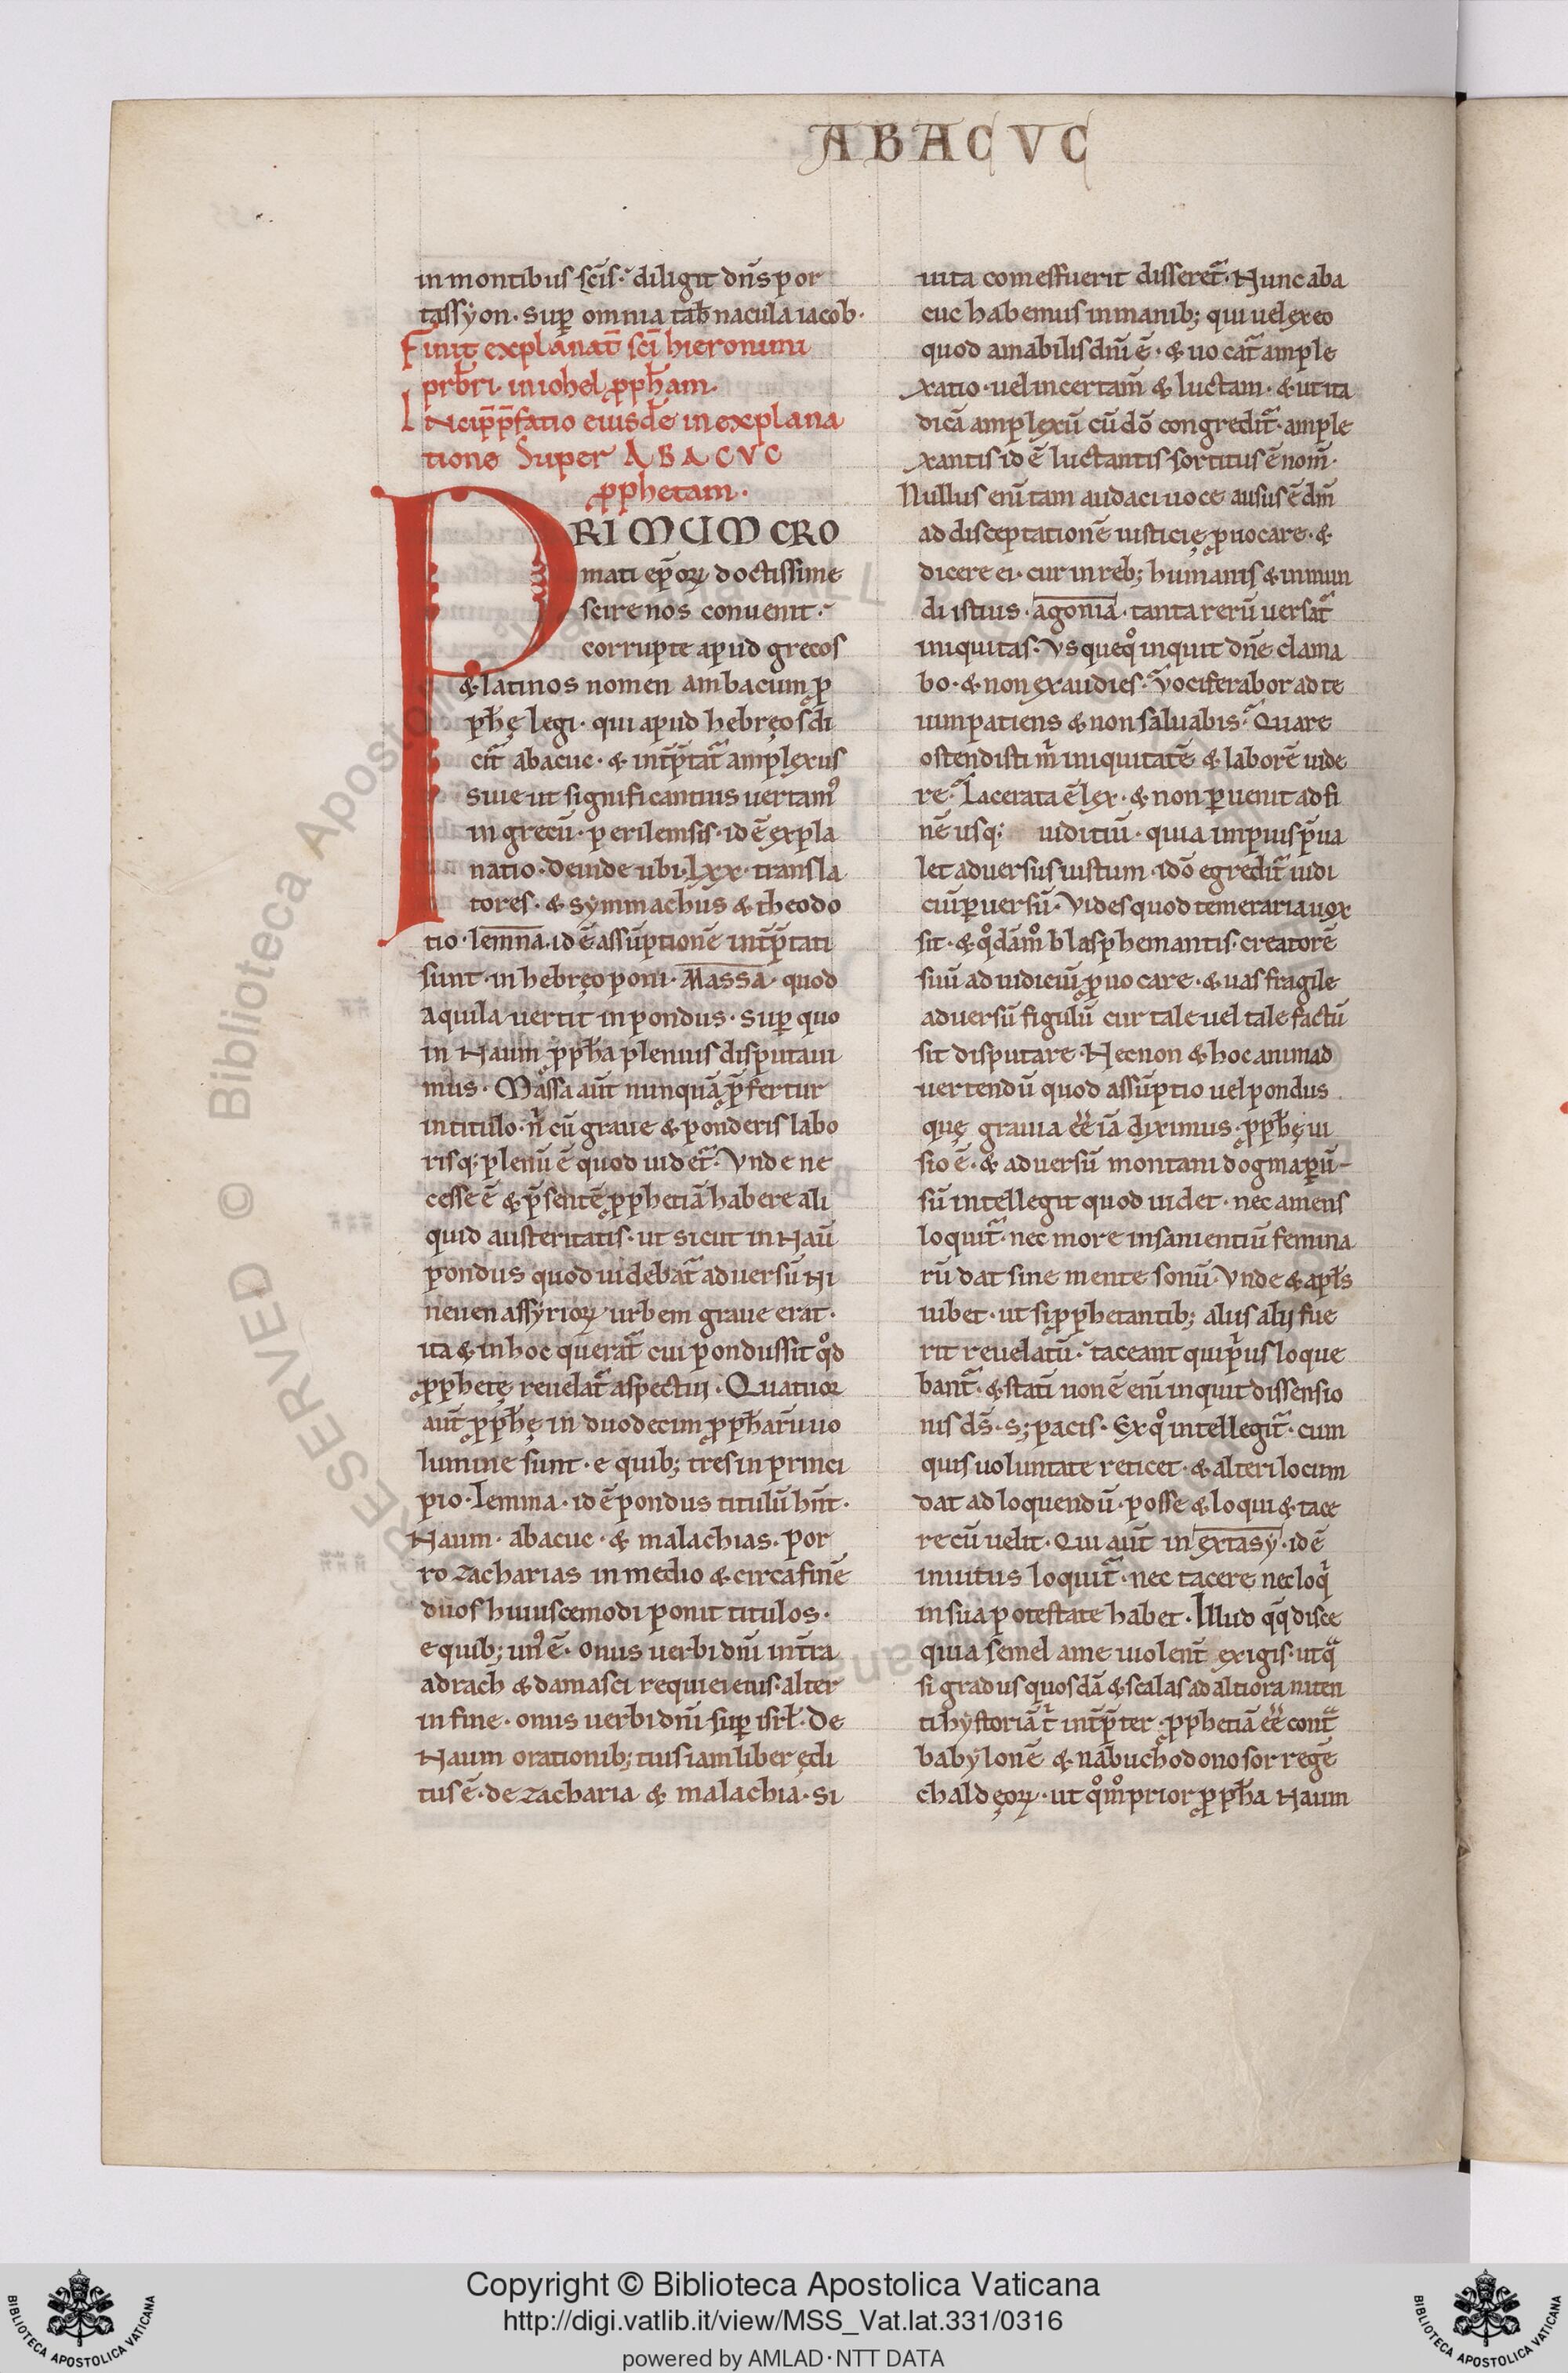 ABACVC
in montibus sc̄is. diligit dn̄s por
tas syon. sup̄ omnia tab̄nacula iacob.
Finit explanat̄ sc̄i hieronimi
prb̄ri. in iohel ꝓph̄am.
Incip̄ p̄fatio eiusdē in explana
tione Super ABACVC
ꝓphetam.
PRIMUM CRO
mati ep̄oꝝ doctissime
scire nos conuenit.
corrupte apud grecos
& latinos nomen ambacum ꝓ
ph̄ę legi. qui apud hebręos di
cit̄ abacuc. & int̄p̄tat̄ amplexus
siue ut significantius uertamꝰ
in grecū. perilemsis. id ē expla
natio. Deinde ubi. lxx. transla
tores. & symmachus & theodo
tio. lemna. id ē assūptionē int̄p̄tati
sunt. in hebręo poni. Massa. quod
aquila uertit in pondus. Sup̄ quo
in Naum ꝓph̄a plenius disputaui
mus. Massa aut̄ nunquā p̄fertur
in titulo. n̄ cū graue & ponderis labo
risq; plenū ē quod uidet̄. Vnde ne
cesse ē & p̄sentē ꝓphetiā habere ali
quid austeritatis. ut sicut in Naū
pondus quod uidebat̄ aduersū Ni
neuen assyrioꝝ urbem graue erat.
ita & in hoc querat̄ cui pondus sit qͦd
ꝓphetę reuelat̄ aspectui. Quatuor
aut̄ ꝓph̄ę in duodecim ꝓph̄arū uo
lumine sunt. e quib; tres in princi
pio. lemma. id ē pondus titulū hn̄t.
Naum. abacuc. & malachias. Por
ro zacharias in medio & circa finē
duos huiuscemodi ponit titulos.
e quib; unꝰ ē. Onus uerbi dn̄i int̄ra
adrach & damasci requiei eius. alter
in fine. onus uerbi dn̄i sup̄ isrł. De
Naum orationib; tuis iam liber ędi
tus ē. de zacharia & malachia. si
uita comes fuerit disseret̄. Nunc aba
cuc habemus in manib; qui uel ex eo
quod amabilis dn̄i ē. & uocat̄ ample
xatio. uel in certam̄ & luctam. & ut ita
dicā amplexū cū dō congredit̄. ample
xantis id ē luctantis sortitus ē nom̄.
Nullus enī tam audaci uoce ausus ē dm̄
ad disceptationē iusticię ꝓuocare. &
dicere ei. cur in reb; humanis & in mun
di istius. agonia. tanta rerū uersat̄
iniquitas. Vsquequͦ inquit dn̄e clama
bo. & non exaudies. Vociferabor ad te
uim patiens & non saluabis. Quare
ostendisti m̄ iniquitatē & laborē uide
re. Lacerata ē lex. & non ꝑuenit ad fi
nē usq; iuditiū. quia impius p̄ua
let aduersus iustum. idō egredit̄ iudi
ciū ꝑuersū. Vides quod temeraria uox
sit. & qͦdāmͦ blasphemantis. creatorē
suū ad iudiciū ꝓuocare. & uas fragile
aduersū figulū cur tale uel tale factū
sit disputare. Necnon & hoc animad
uertendū quod assūptio uel pondus
quę grauia ēē iā diximus. ꝓph̄ę ui
sio ē. & aduersū montani dogma ꝑū-
sū intellegit quod uidet. nec amens
loquit̄. nec more insanientiū femina
rū dat sine mente sonū. Vnde & apłs
iubet. ut si ꝓphetantib; aliis alij fue
rit reuelatū. taceant qui prius loque
bant̄. & statī non ē enī inquit dissensio
nis d̄s. s; pacis. Ex qͦ intellegit̄. cum
quis uoluntate reticet. & alteri locum
dat ad loquendū. posse & loqui & tace
re cū uelit. Qui aut̄ in extasy. id ē
inuitus loquit̄. nec tacere nec loq̄
in sua potestate habet. Illud qq̄ disce
quia semel a me uiolent̄ exigis. ut qͣ
si gradus quosdā & scalas ad altiora niten
ti hystoriā t̄ int̄p̄ter. ꝓphetiā ēē contͣ
babylonē & nabuchodonosor regē
chaldęoꝝ. ut qͦmͦ prior ꝓph̄a Naum
Copyright © Biblioteca Apostolica Vaticana
http://digi.vatlib.it/view/MSS_Vat.lat.331/0316
powered by AMLAD·NTT DATA
BIBLIOTECA APOSTOLICA VATICANA
BIBLIOTECA APOSTOLICA VATICANA